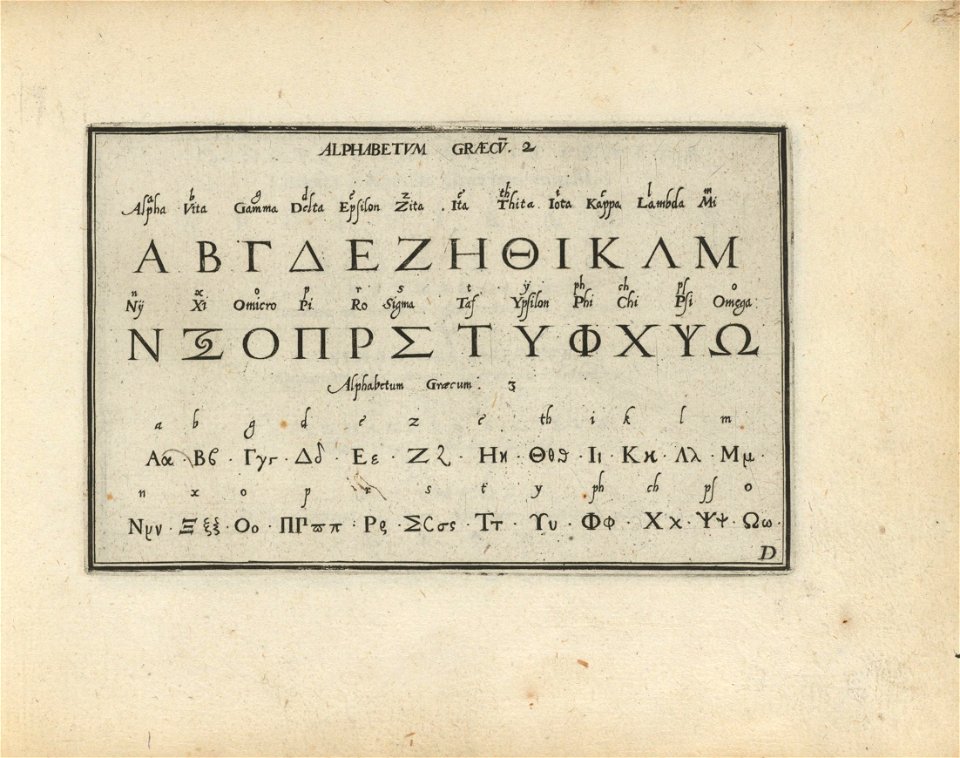 ALPHABETVM GRÆCV̄. 2
a b g d e z e th i c l m
Alpha Vita Gamma Delta Epsilon Zita Ita Thita Iota Kappa Lambda Mi
Α Β Γ Δ Ε Ζ Η Θ Ι Κ Λ Μ
n x o p r s t y ph ch ps o
Nÿ Xi Omicro Pi Ro Sigma Taf Ypsilon Phi Chi Psi Omega
Ν Ξ Ο Π Ρ Σ Τ Υ Φ Χ Ψ Ω
Alphabetum Græcum. 3
a b g d e z e th i k l m
Αα · Βϐ · Γγ · Δδ · Εε · Ζζ · Ηη · Θθϑ · Ιι · Κκ · Λλ · Μμ ·
n x o p r s t y ph ch ps o
Νν · Ξξξ · Οο · Πϖπ · Ρρ · ΣϹσς · Ττ · Υυ · Φφ · Χχ · Ψψ · Ωω ·
D